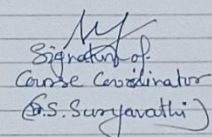 Signature of
Course Coordinator
(G.S. Suryavathi)